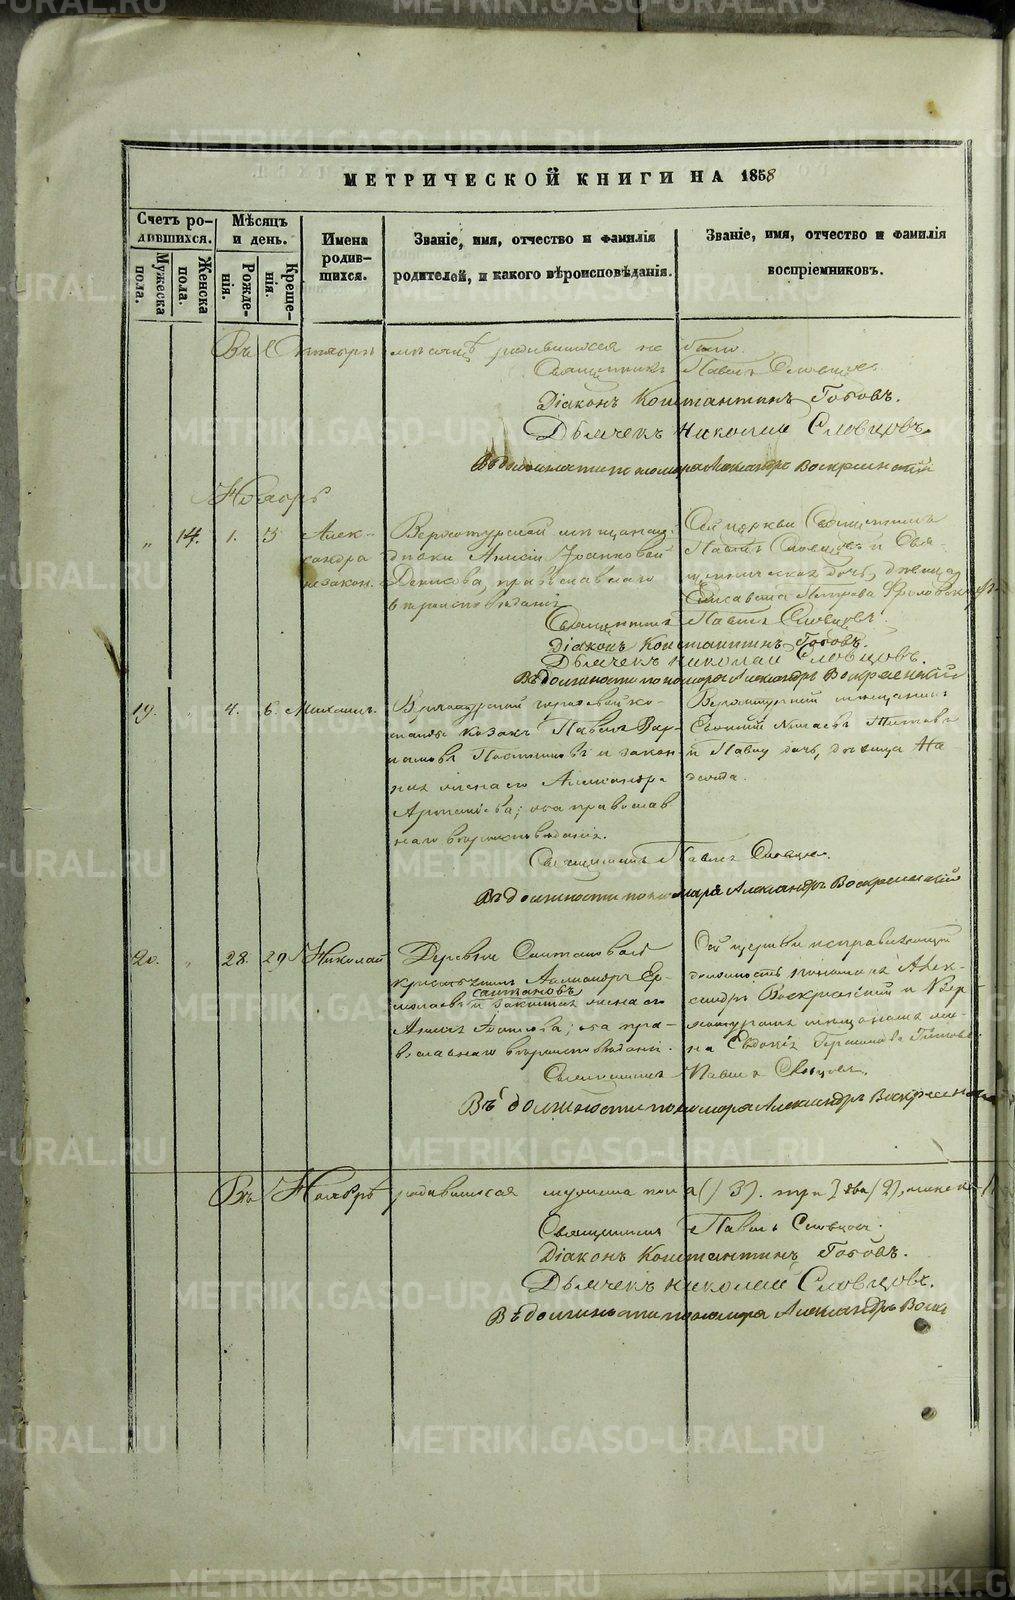 МЕТРИЧЕСКОЙ КНИГИ НА 1858
Счетъ ро-
дившихся.
Мѣсяцъ
и день.
Имена
родив-
шихся.
Званіе, имя, отчество и фамилія
родителей, и какого вѣроисповѣданія.
Званіе, имя, отчество и фамилія
воспріемниковъ.
Мужеска
пола.
Женска
пола.
Рожде-
нія.
Креще-
нія.
Въ Октябрѣ мѣсяцѣ родившихся не было.
Священникъ Павелъ Словцовъ.
Діаконъ Константинъ Гобовъ.
Дьячекъ Николай Словцовъ.
Въ должности пономаря Александръ Воскресенскій
Ноябрь
„ 14. 1. 3
Алек-
сандра
незакон.
Верхотурской мѣщанки
Анисіи
Денисова, православнаго
вѣроисповѣданія
Сей церкви Священникъ
Павелъ Словцовъ и Свя-
щенническая дочь, дѣвица
Елисавета Петрова
Священникъ Павелъ Словцовъ.
Діаконъ Константинъ Гобовъ.
Дьячекъ Николай Словцовъ.
Въ должности пономаря Александръ Воскресенскій
19. 4. 6. Михаилъ.
Верхотурской городовой ко-
манды козакъ Павелъ Вар-
ламовъ Постниковъ и закон
ная жена его Александра
Артемьева; оба православ
наго вѣроисповѣданія.
Верхотурскій мѣщанинъ
Евгеній Титовъ
и Павла дочь, дѣвица На-
дежда.
Священникъ Павелъ Словцовъ.
Въ должности пономаря Александръ Воскресенскій
20. „ 28. 29 Николай
Деревни Салтановой
крестьянинъ Александръ Ер-
молаевъ Салтановъ и законная жена его
Анна; оба пра-
вославнаго вѣроисповѣданія.
Сей церкви исправляющій
должность пономаря Алек-
сандръ Воскресенскій и Вер-
хотурская мѣщанская же-
на Евдокія Герасимова Титова
Священникъ Павелъ Словцовъ.
Въ должности пономаря Александръ Воскресенскій
Въ Ноябрѣ родившихся мужеска пола (3). три два (2), женск
Священникъ Павелъ Словцовъ.
Діаконъ Константинъ Гобовъ.
Дьячекъ Николай Словцовъ.
Въ должности пономаря Александръ Воск
METRIKI.GASO-URAL.RU